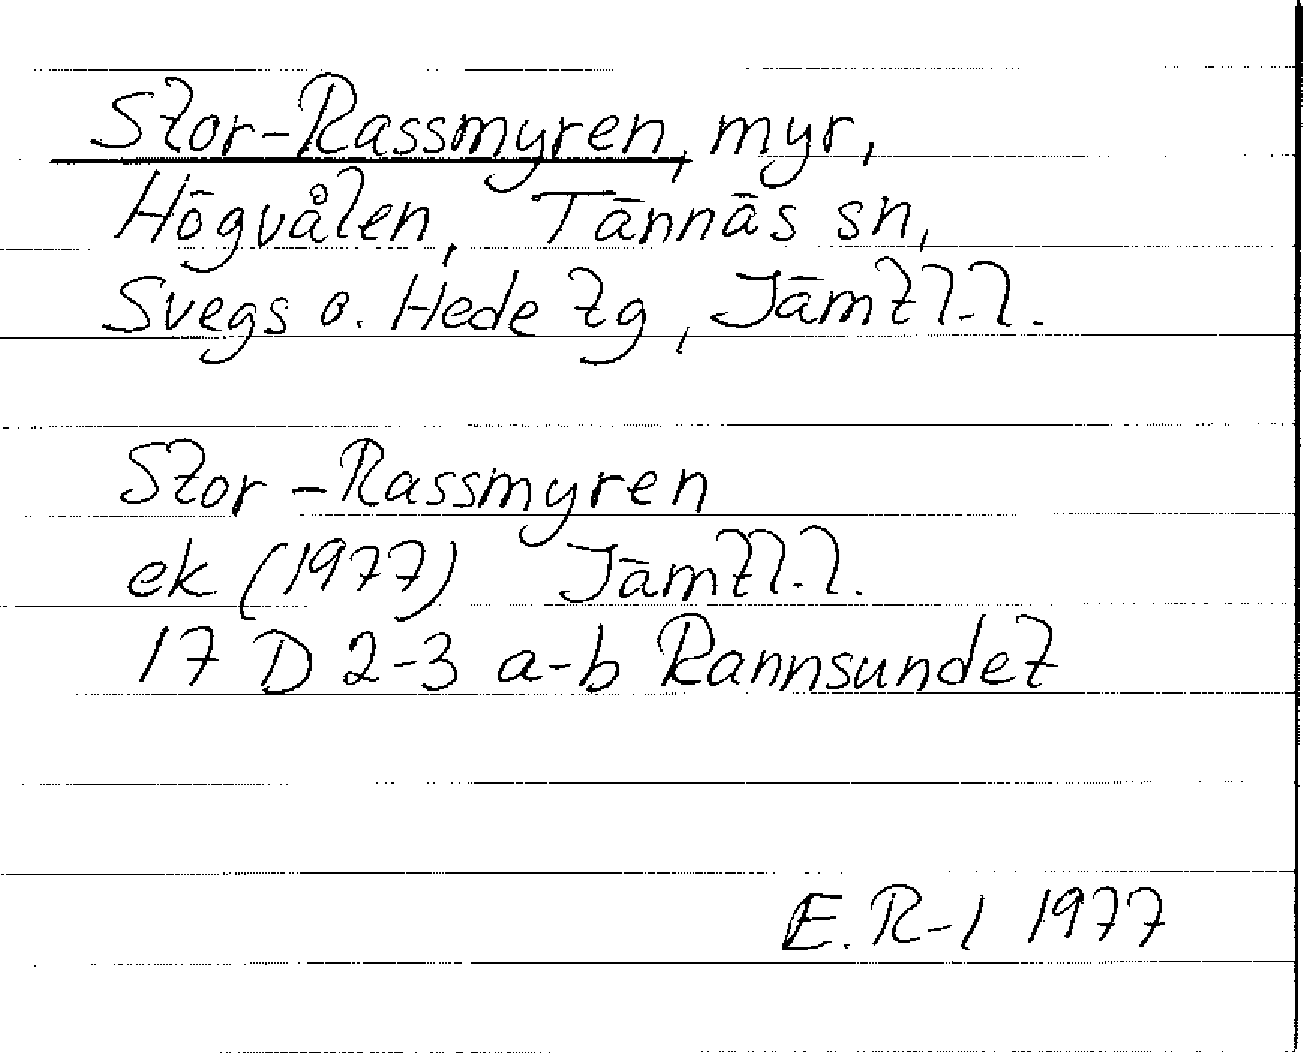 Stor-Rassmyren, myr,
Högvålen, Tännäs sn,
Svegs o. Hede tg, Jämtl.l.
Stor-Rassmyren
ek (1977) Jämtl.l.
17 D 2-3 a-b Rannsundet
E.R-l 1977